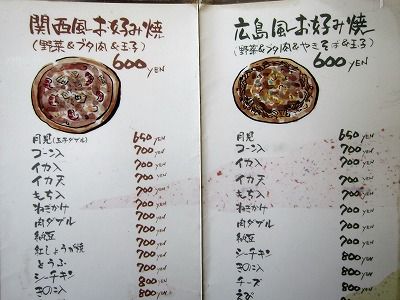 関西風お好み焼
(野菜&ブタ肉&玉子)
600 YEN
月見(玉子ダブル) 650 YEN
コーン入 700 YEN
イカ入 700 YEN
イカ天 700 YEN
もち入 700 YEN
ねぎかけ 700 YEN
肉ダブル 700 YEN
納豆 700 YEN
紅しょうが焼 700 YEN
とうふ 700 YEN
シーチキン 800 YEN
きのこ入 800
広島風お好み焼
(野菜&ブタ肉&やきそば&玉子)
600 YEN
月見 650 YEN
コーン入 700 YEN
イカ入 700 YEN
イカ天 700 YEN
もち入 700 YEN
ねぎかけ 700 YEN
肉ダブル 700 YEN
納豆 700 YEN
シーチキン 800 YEN
きのこ入 800 YEN
チーズ 800 YEN
えび 800